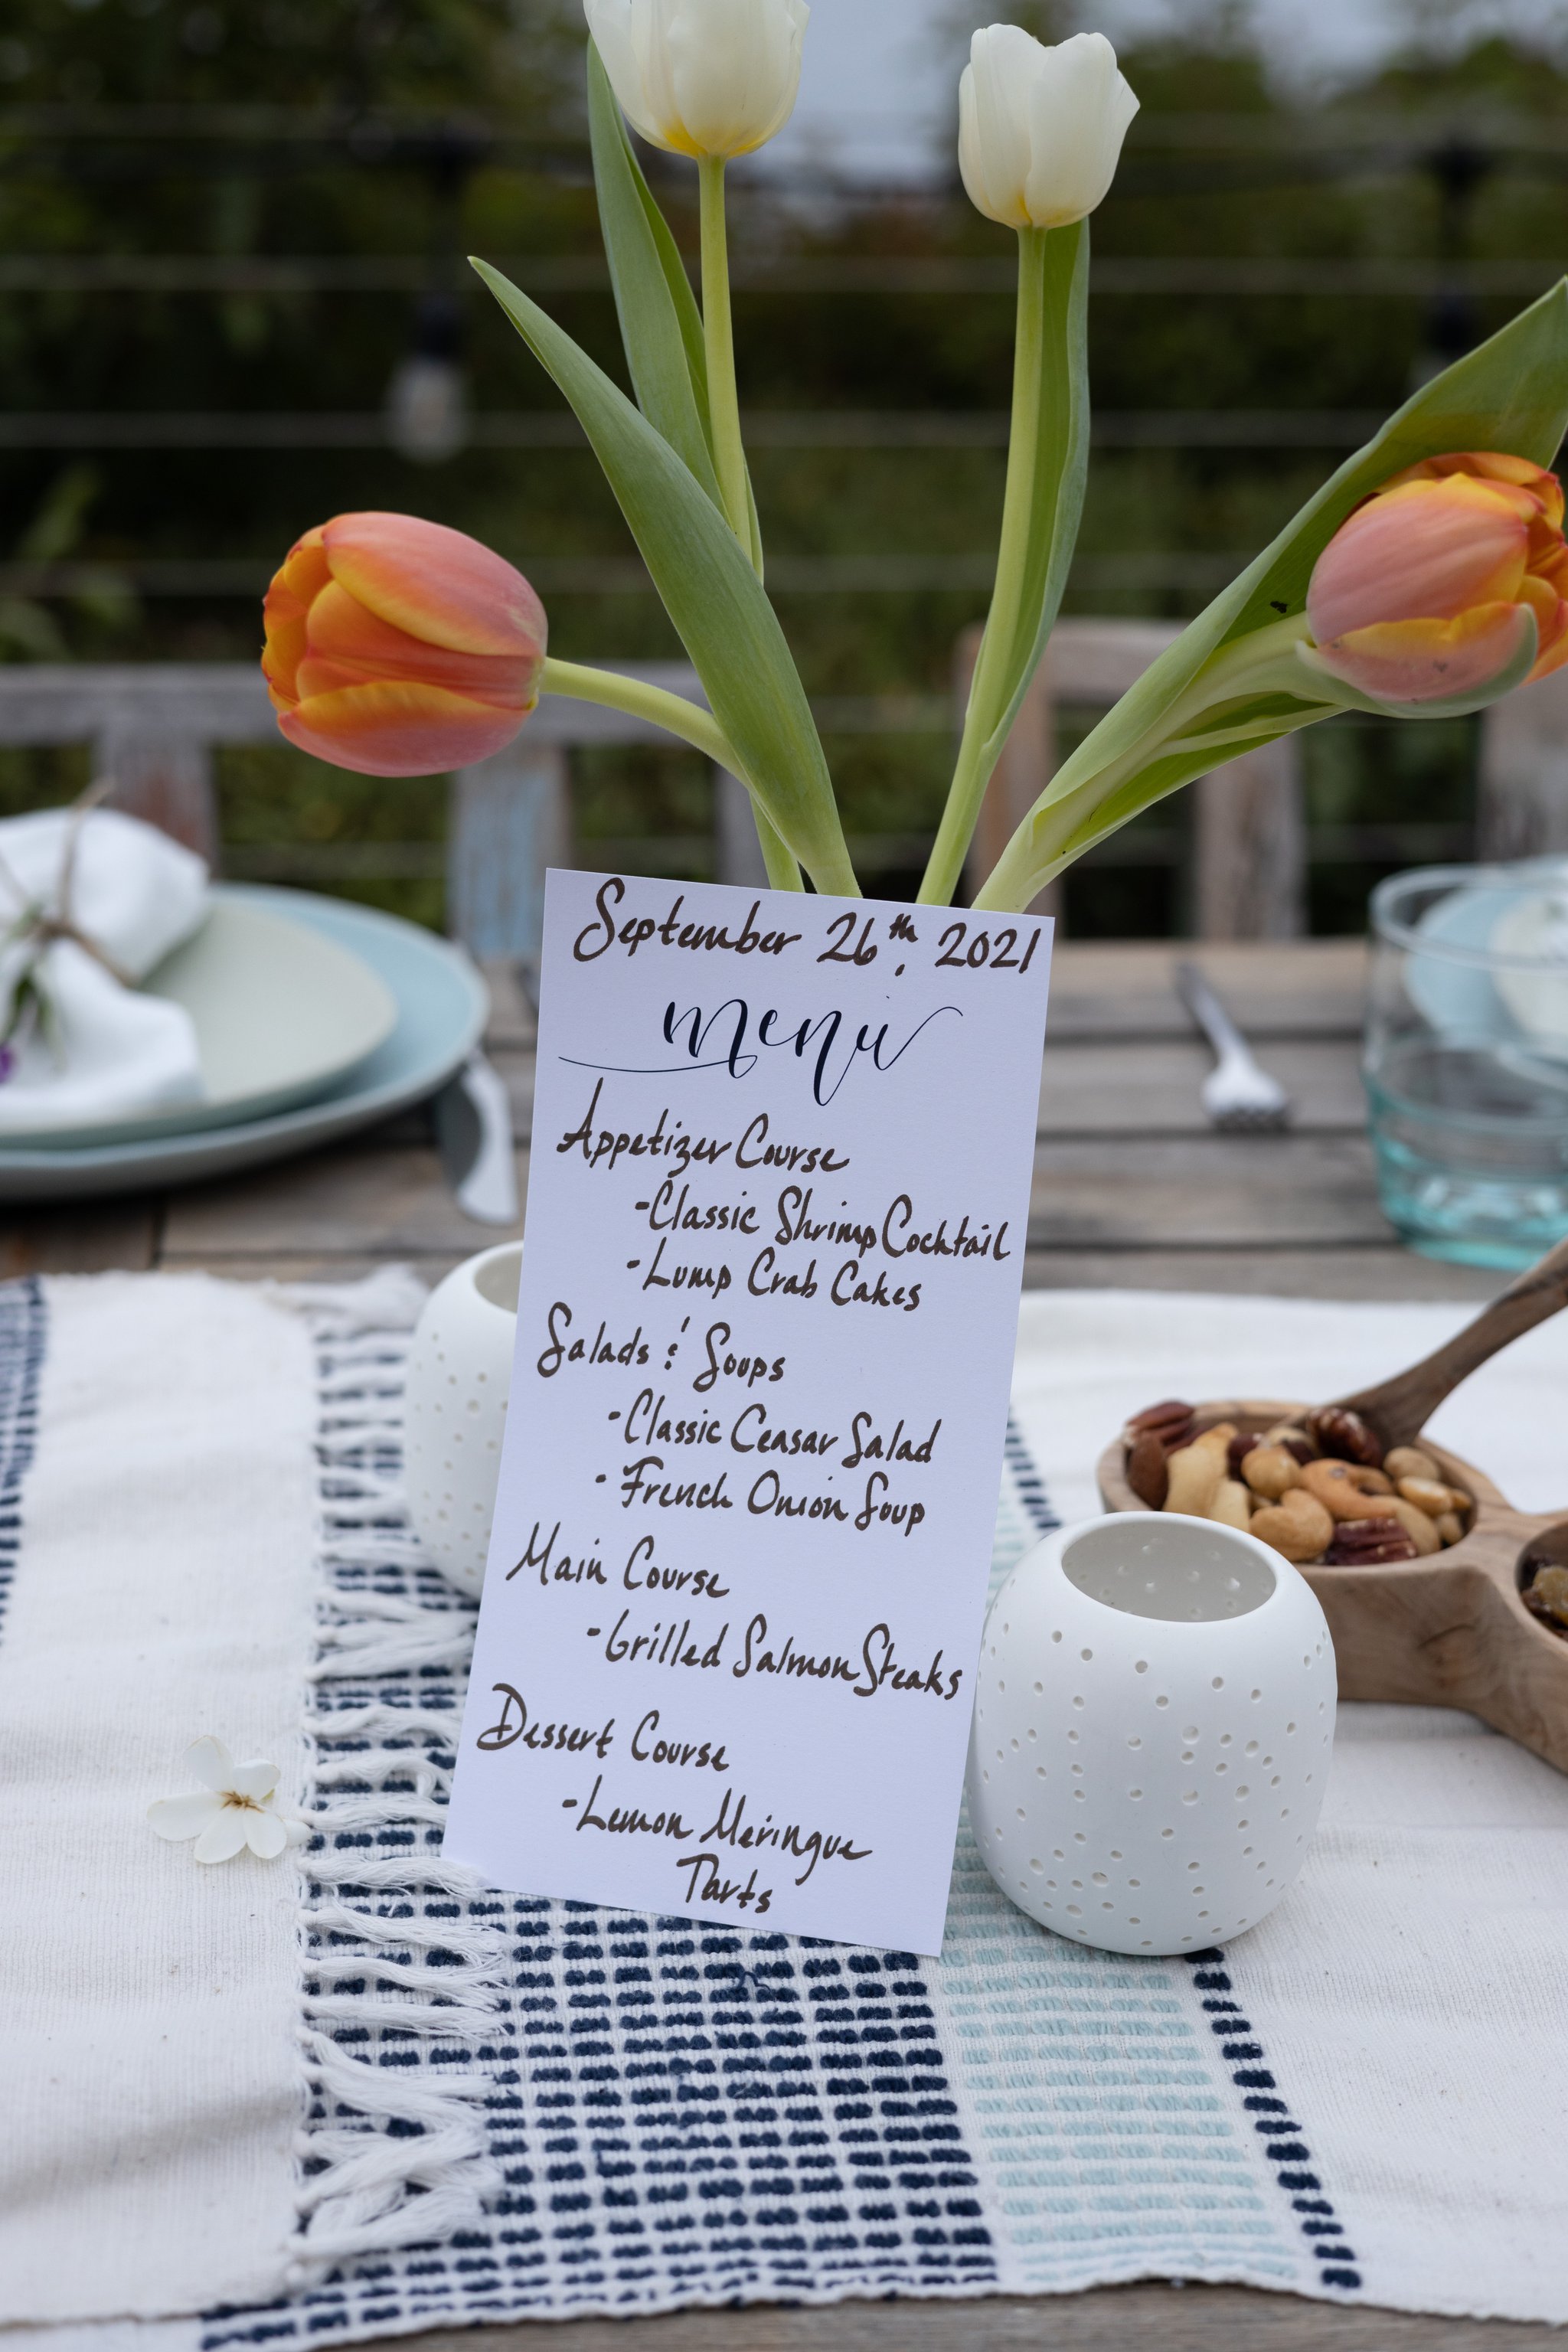 September 26th, 2021
menu
Appetizer Course
-Classic Shrimp Cocktail
-Lump Crab Cakes
Salads & Soups
-Classic Ceasar Salad
-French Onion Soup
Main Course
-Grilled Salmon Steaks
Dessert Course
-Lemon Meringue
Tarts